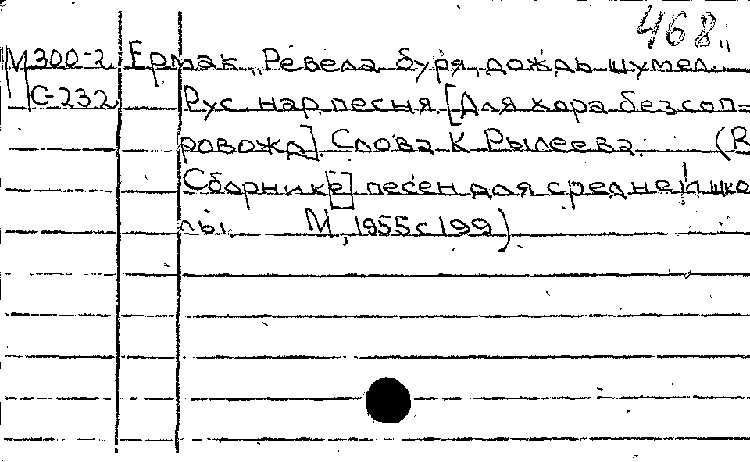 468
М300-2 Ермак „Ревела буря, дождь шумел..
С-232 Рус. нар. песня. [Для хора без соп-
ровожд]. Слова К. Рылеева. (В
Сборник[е] песен для средней шко
лы. М, 1955 с 199)